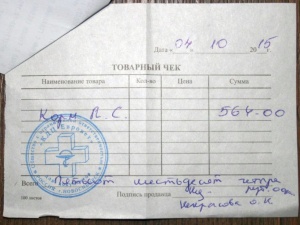 Дата «04» 10 2015
ТОВАРНЫЙ ЧЕК
Наименование товара Кол-во Цена Сумма
Корм Л.С. 564-00
Всего Пятьсот шестьдесят четыре
руб 00
Подпись продавца
Некрасова О.Н